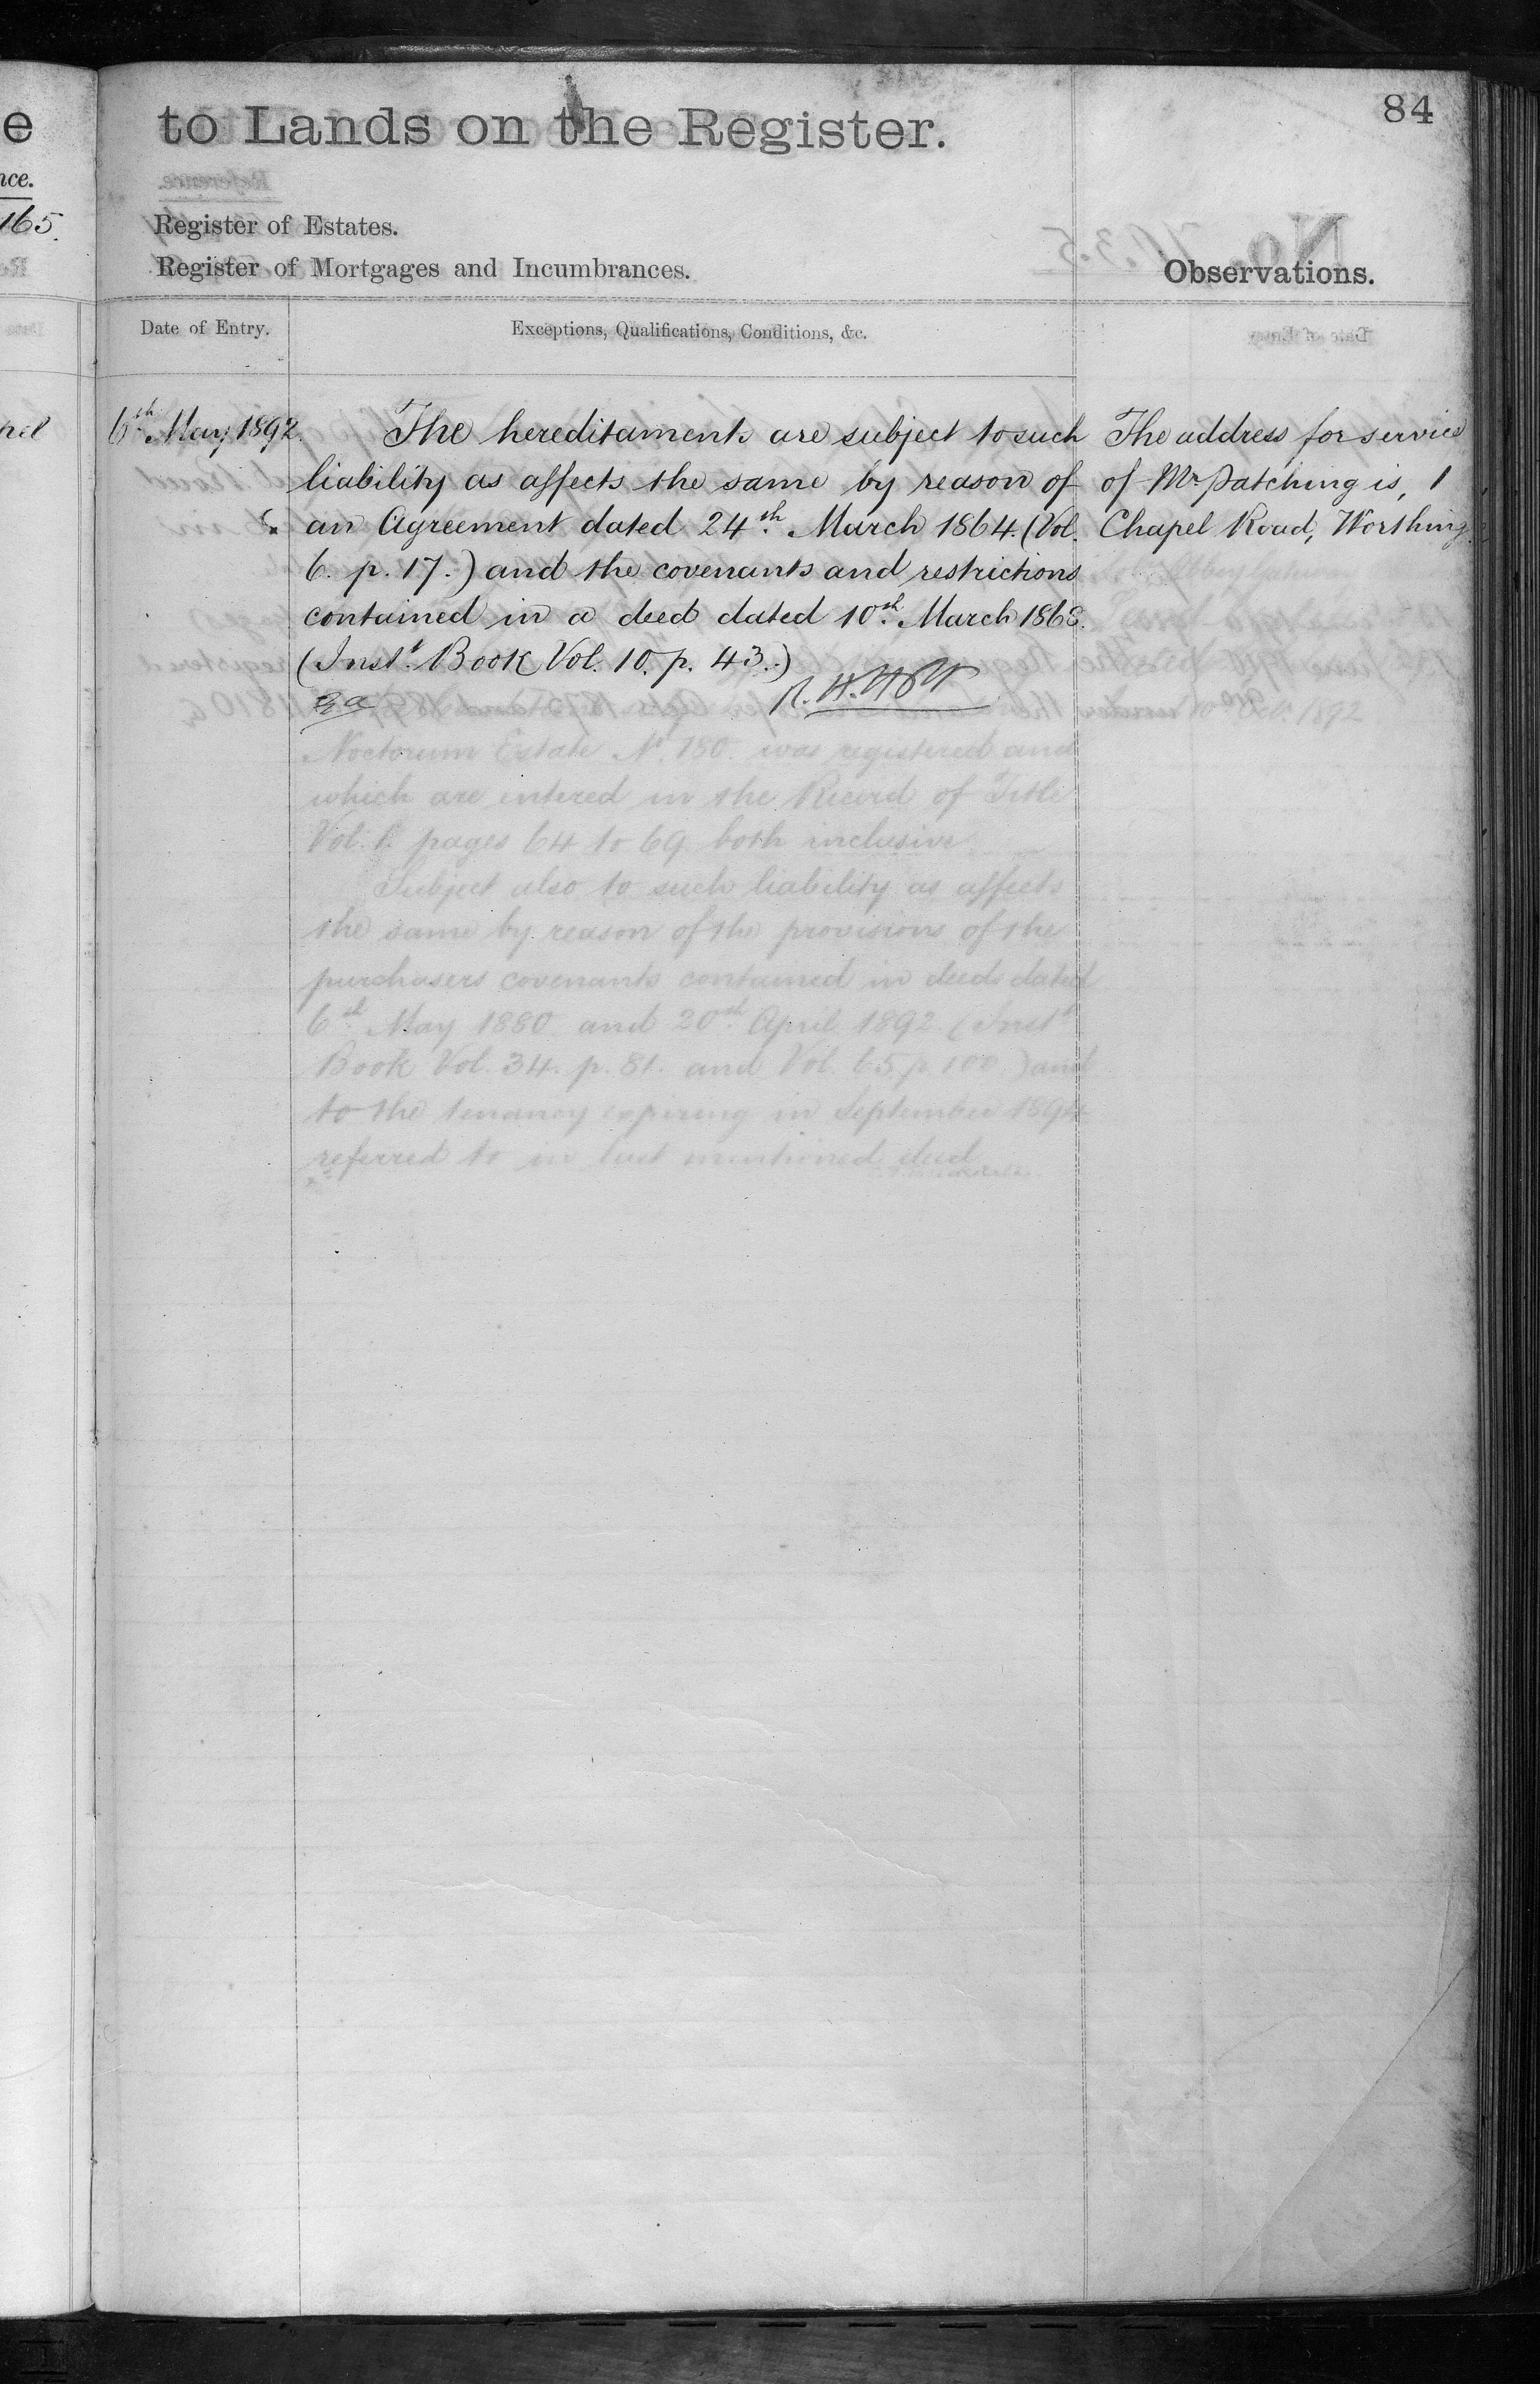 84
to Lands on the Register.
Register of Estates.
Register of Mortgages and Incumbrances.
Observations.
Date of Entry.
Exceptions, Qualifications, Conditions, &c.
6th May 1892.
The hereditaments are subject to such
liability as affects the same by reason of
an Agreement dated 24th March 1864. (Vol.
6. p. 17.) and the covenants and restrictions
contained in a deed dated 10th March 1868.
(Inst. Book Vol. 10. p. 43.)
The address for service
of Mr Patching is, 1
Chapel Road, Worthing.
Noctorum Estate No. 180. was registered and
which are entered in the Record of Title
Vol. 1. pages 64 to 69 both inclusive.
Subject also to such liability as affects
the same by reason of the provisions of the
purchasers covenants contained in deeds dated
6th May 1880 and 20th April 1892 (Inst
Book Vol. 34. p. 81. and Vol. 65 p. 100.) and
to the tenancy expiring in September 1894
referred to in last mentioned deed
e
nce.
165.